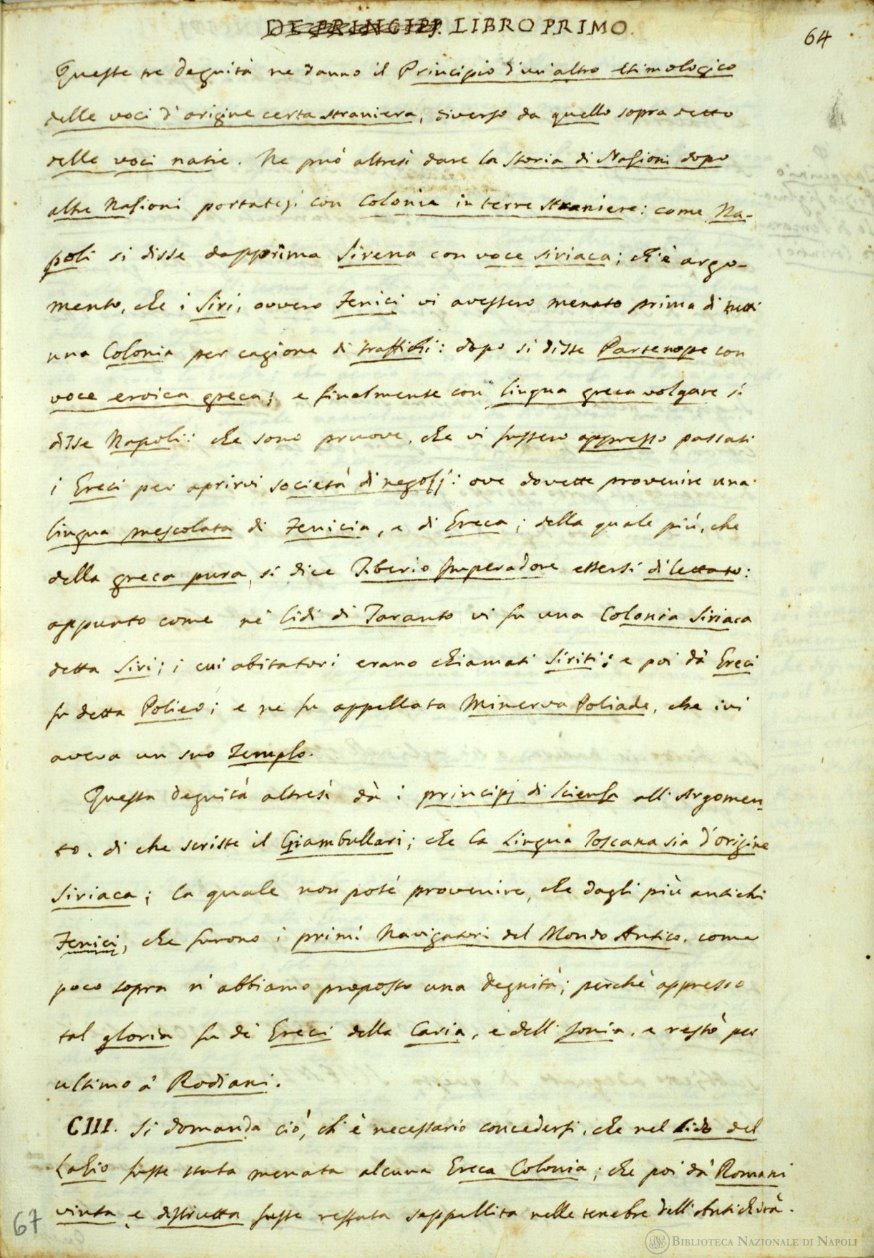 DE PRINCIPJ. LIBRO PRIMO.
64
Queste tre degnità ne danno il Principio d'un'altro Etimologico
delle voci d'origine certa straniera, diverso da quello sopra detto
delle voci natie. Ne può altresì dare la Storia di Nazioni dopo
altre Nazioni portatesi con Colonie in terre straniere: come Na-
poli si disse dapprima Sirena con voce siriaca; ch'è argo-
mento, che i Siri, ovvero Fenici vi avessero menato prima di tutti
una Colonia per cagione di traffichi: dopo si disse Partenope con
voce eroica greca; e finalmente con lingua greca volgare si
disse Napoli: che sono pruove, che vi fussero appresso passati
i Greci per aprirvi società di negozj: ove dovette provenire una
lingua mescolata di Fenicia, e di Greca; della quale più, che
della greca pura, si dice Tiberio Imperadore essersi dilettato:
appunto come ne' lidi di Taranto vi fu una Colonia Siriaca
detta Siri; i cui abitatori erano chiamati Siriti; e poi da' Greci
fu detta Polieo; e ne fu appellata Minerva Poliade, che ivi
aveva un suo Templo.
Questa degnità altresì dà i principj di Scienza all'Argomen-
to, di che scrisse il Giambullari; che la Lingua Toscana sia d'origine
Siriaca; la quale non poté provenire, che dagli più antichi
Fenici, che furono i primi Navigatori del Mondo Antico, come
poco sopra n'abbiamo proposto una degnità; perchè appresso
tal gloria fu de' Greci della Caria, e dell'Jonia, e restò per
ultimo a' Rodiani.
CIII. Si domanda ciò, ch'è necessario concedersi, che nel lido del
Lazio fusse stata menata alcuna Greca Colonia; che poi da' Romani
vinta, e distrutta fusse restata seppellita nelle tenebre dell'Antichità.
67
BIBLIOTECA NAZIONALE DI NAPOLI